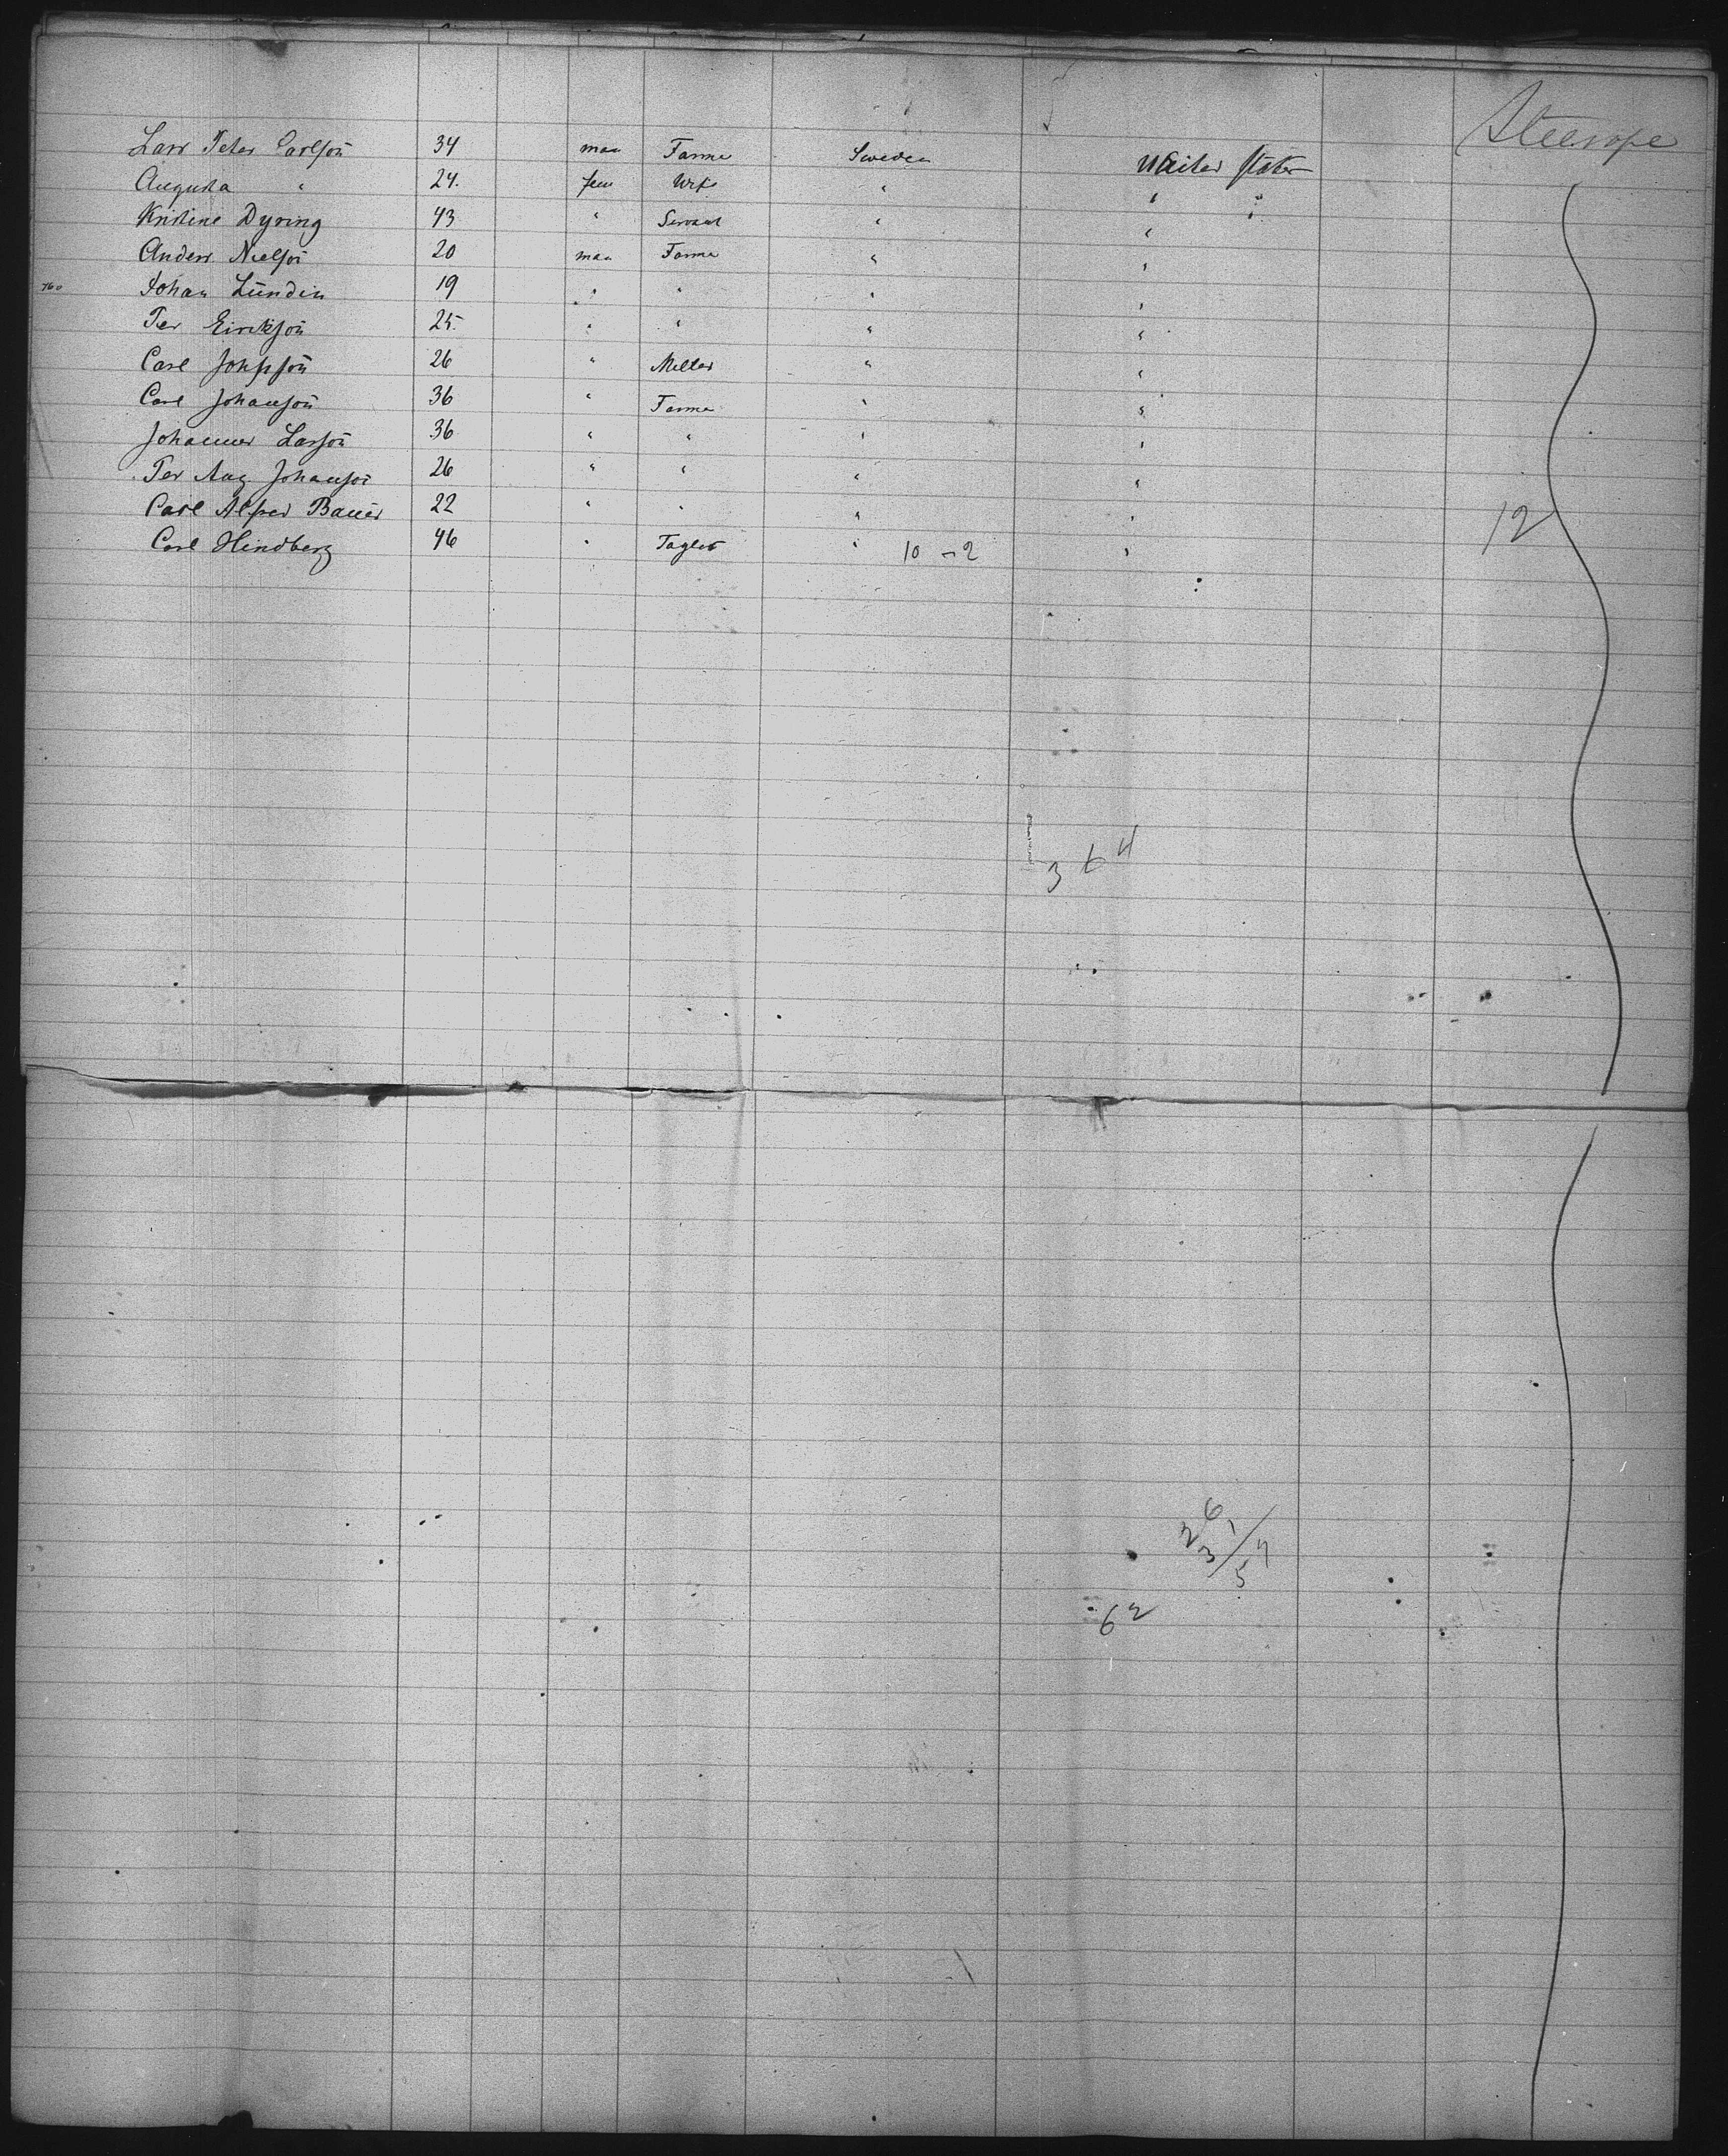 Steerage
Lars Peter Carlson 34 man Farmer Sweden United States
Augusta " 24. fem Wife " " "
Kristine Dyring 43 " Servant " "
Anders Nielson 20 man Farmer " "
760 Johan Lundin 19 " " " "
Per Erickson 25 " " " "
Carl Johnson 26 " Miller " "
Carl Johanson 36 " Farmer " "
Johannes Larson 36 " " " "
Per Aug Johanson 26 " " " "
Carl Alfred Bauer 22 " " " " 12
Carl Hindberg 46 " " 10 - 2 "
3 6 4
6 1
2 3 / 5 7
6 2